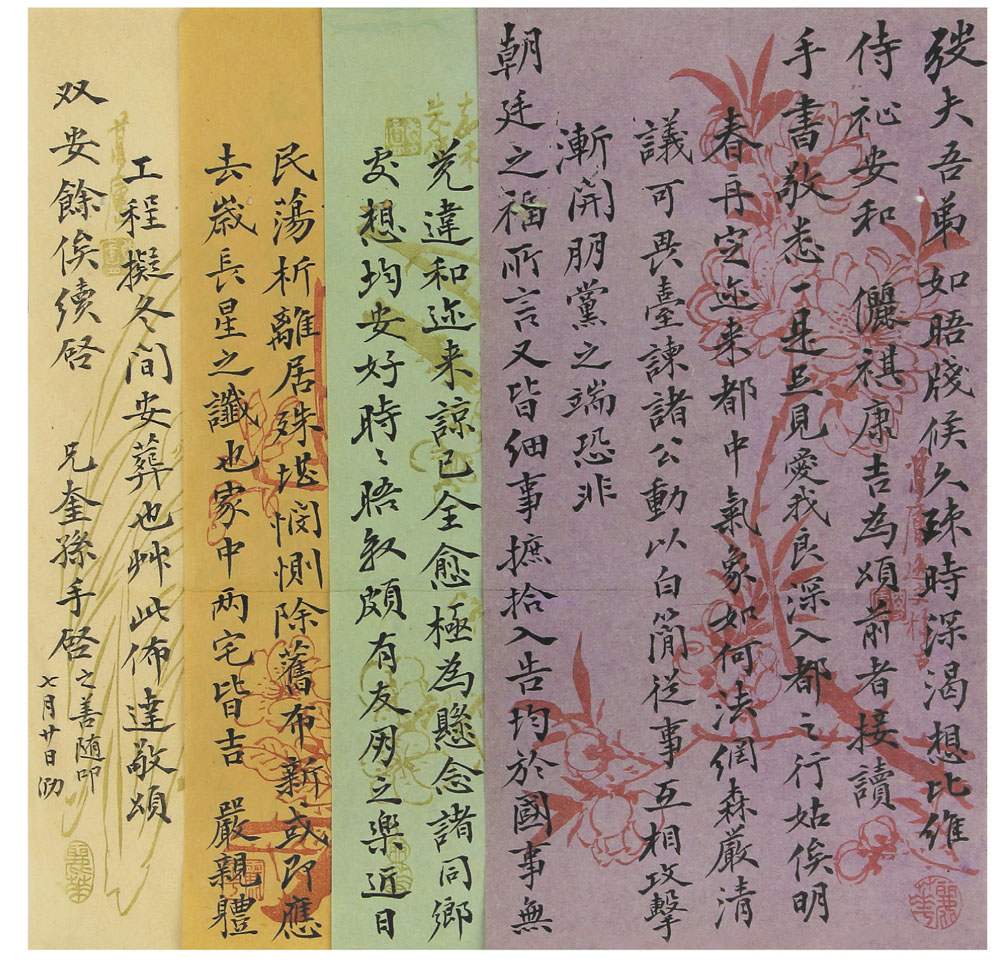 弢夫吾弟如晤牋候久疎時深渴想比維
侍祉安和 儷祺康吉為頌前者接讀
手書敬悉一是且見愛我良深入都之行姑俟明
春再定迩来都中氣象如何法網森嚴清
議可畏臺諫諸公動以白簡從事互相攻擊
漸開朋黨之端恐非
朝廷之福所言又皆細事摭拾入告均於國事無
党違和迩来諒已全愈極為懸念諸同鄉
處想均安好時〻晤敘頗有友朋之樂近日
民蕩析離居殊堪憫惻除舊布新或即應
去歲長星之讖也家中兩宅皆吉 嚴親體
工程擬冬間安葬也艸此佈達敬頌
双安餘俟續啓 兄奎孫手啓 之善随叩
七月廿日泐